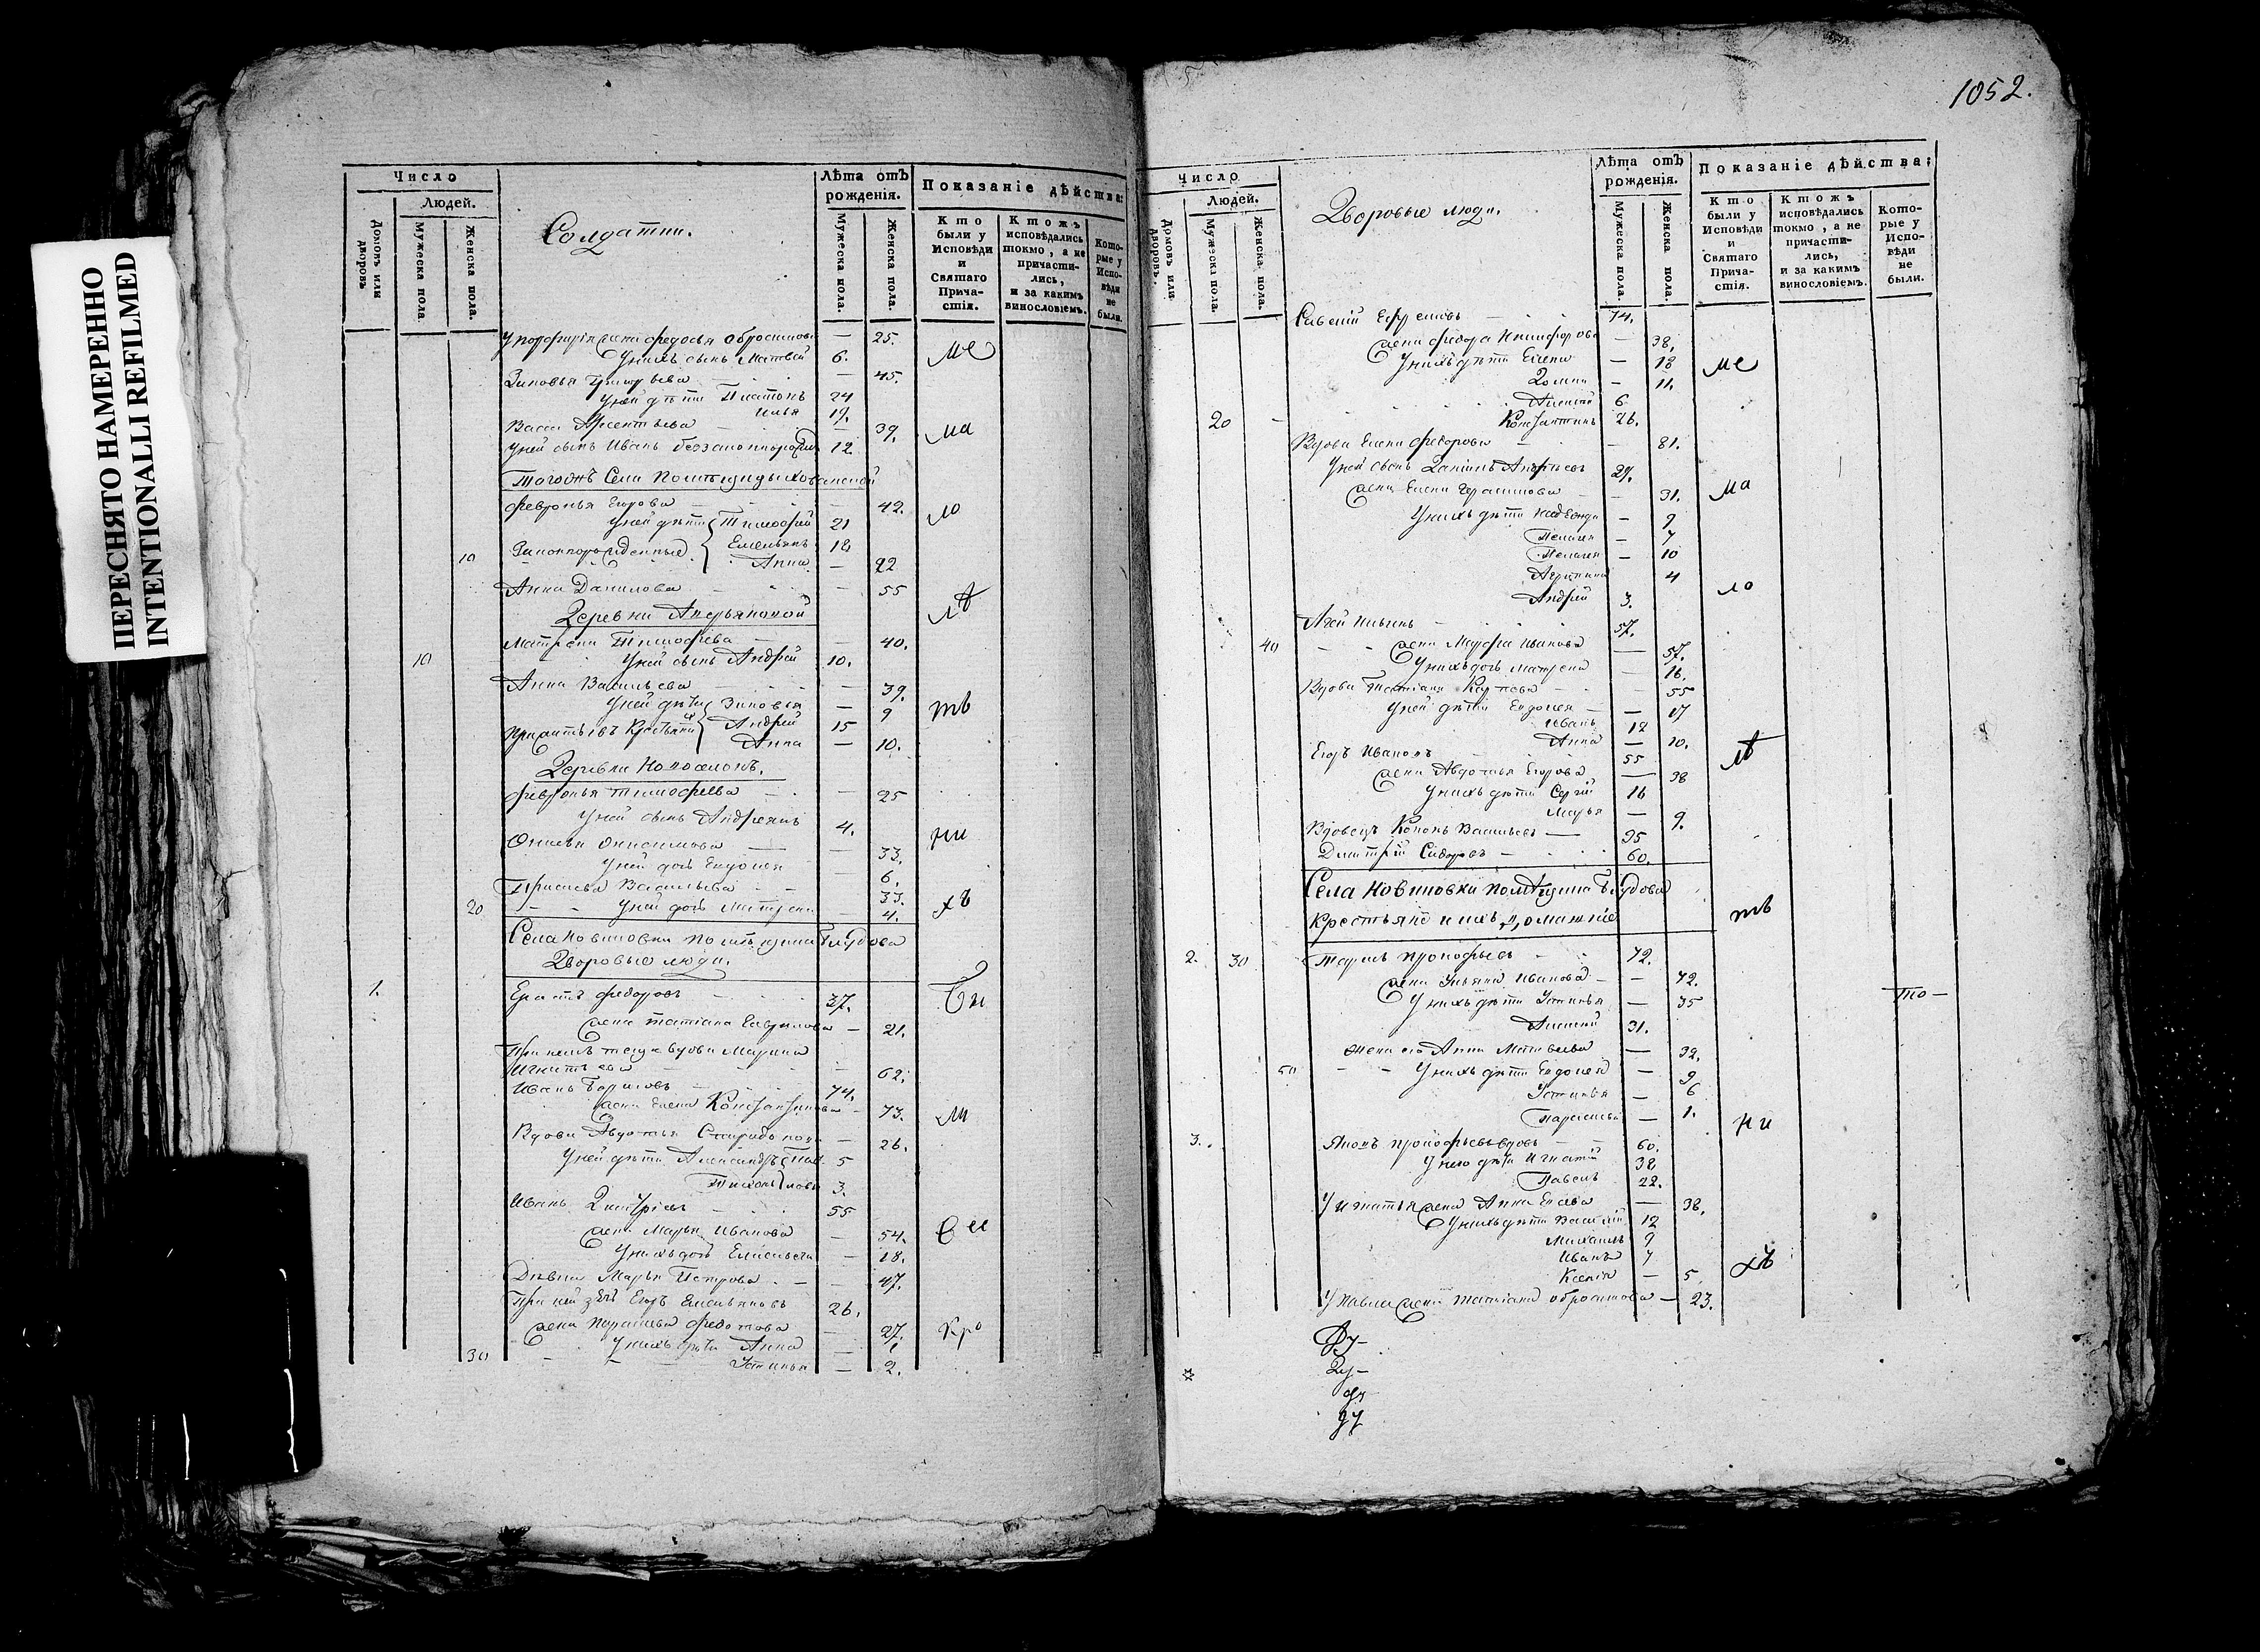 ПЕРЕСНЯТО НАМЕРЕННО
INTENTIONALLI REFILMED
Число
Людей.
Домовъ или дворовъ
Мужеска пола.
Женска пола.
Солдатки.
Лѣта отъ рожденія.
Мужеска пола.
Женска пола.
Показаніе дѣйства:
Кто были у Исповѣди и Святаго Прича-стія.
Ктожъ исповѣдались токмо, а не причасти-лись, и за какимъ винословіемъ.
Кото-рые у Испо-вѣди не были.
У порфирія жена федосья Обросимова — 25.
У нихъ сынъ Матвей 6. ме
Зиновья Григорьева — 45.
У ней дѣти Платонъ 24
Илья 19.
Васса — 39. ма
У ней сынъ Иванъ 12
Тогожъ Села
февронья Егорова — 42. ло
У ней дѣти Тимофей 21
10 Законнорожденные Емельянъ 18
Анна — 22
Анна Данилова — 55
Деревни Андрьяновой лѣ
Матрена Тимофеева — 40.
10 У ней сынъ Андрей 10.
Анна Васильева — 39.
У ней дѣти Зиновья — 9 тв
Андрей 15
Анна — 10.
Деревни
февронья Тимофеева — 25
У ней сынъ Андреянъ 4. ни
Онисимова — 33.
У ней дочь Евдокея — 6.
Васильева — 33.
20 У ней дочь Матрена — 4. хъ
Села Новиновки помѣщика Блудова
Дворовые люди.
1. федоровъ 37.
жена татіана Гаврилова — 21.
При немъ теща вдова Марина
Игнатьева — 62.
Иванъ Борисовъ 74.
жена Елена Константинова — 73. ли
Вдова Авдотья Спиридонова — 26.
У ней дѣти Александръ 5
Тихонъ 3.
Иванъ Дмитріевъ 55
жена Марья Иванова — 54.
У нихъ дочь — 18.
Дѣвка Марья Петрова — 47.
При ней зять Егоръ Емельяновъ 26.
жена Парасковья федотова — 27. Кро
У нихъ дѣти Анна —
30 Устинья — 2.
1052.
Число
Людей.
Домовъ или дворовъ.
Мужеска пола.
Женска пола.
Дворовые люди.
Лѣта отъ рожденія.
Мужеска пола.
Женска пола.
Показаніе дѣйства:
Кто были у Исповѣди и Святаго Прича-стія.
Ктожъ исповѣдались токмо, а не причасти-лись, и за какимъ винословіемъ.
Кото-рые у Испо-вѣди не были.
Савелій Ефремовъ 74.
жена федора Никифорова — 38.
У нихъ дѣти Елена — 18 ме
Домна — 11.
Алексѣй 6
20 Константинъ 26.
Вдова Елена федорова — 81.
У ней сынъ Даніилъ Андреевъ 29.
жена Елена Герасимова — 31. ма
У нихъ дѣти Надежда — 9
Пелагея — 7
Пелагея — 10
4
Андрей 3. ло
57.
40 жена Марфа Иванова — 57.
У нихъ дочь Матрена — 16.
Вдова Татіана Карпова — 55
У ней дѣти Евдокея — 17
Иванъ 12
Анна — 10.
Егоръ Ивановъ 55 лѣ
жена Авдотья Егорова — 38
У нихъ дѣти Сергей 16
Марья — 9.
Вдовецъ Кононъ Васильевъ 35
Дмитрей Сидоровъ 60.
Села Новиновки помѣщика Блудова
крестьяне и ихъ домашніе тв
2. 30 прокофьевъ 72.
жена Ульяна Иванова — 72.
У нихъ дѣти Устинья — 35 то —
Алексей 31.
Жена его Анна Матвеева — 32.
50 У нихъ дѣти Евдокея — 9
Устинья — 6
Парасковья — 1. ни
3. прокофьевъ вдовъ 60.
У него дѣти Игнатій 38
Павелъ 22.
У Игнатія жена Анна — 38.
У нихъ дѣти Василій 12
Михаилъ 9
Иванъ 7
Ксенія — 5. хъ
У Павла жена татіана Обросимова — 23.